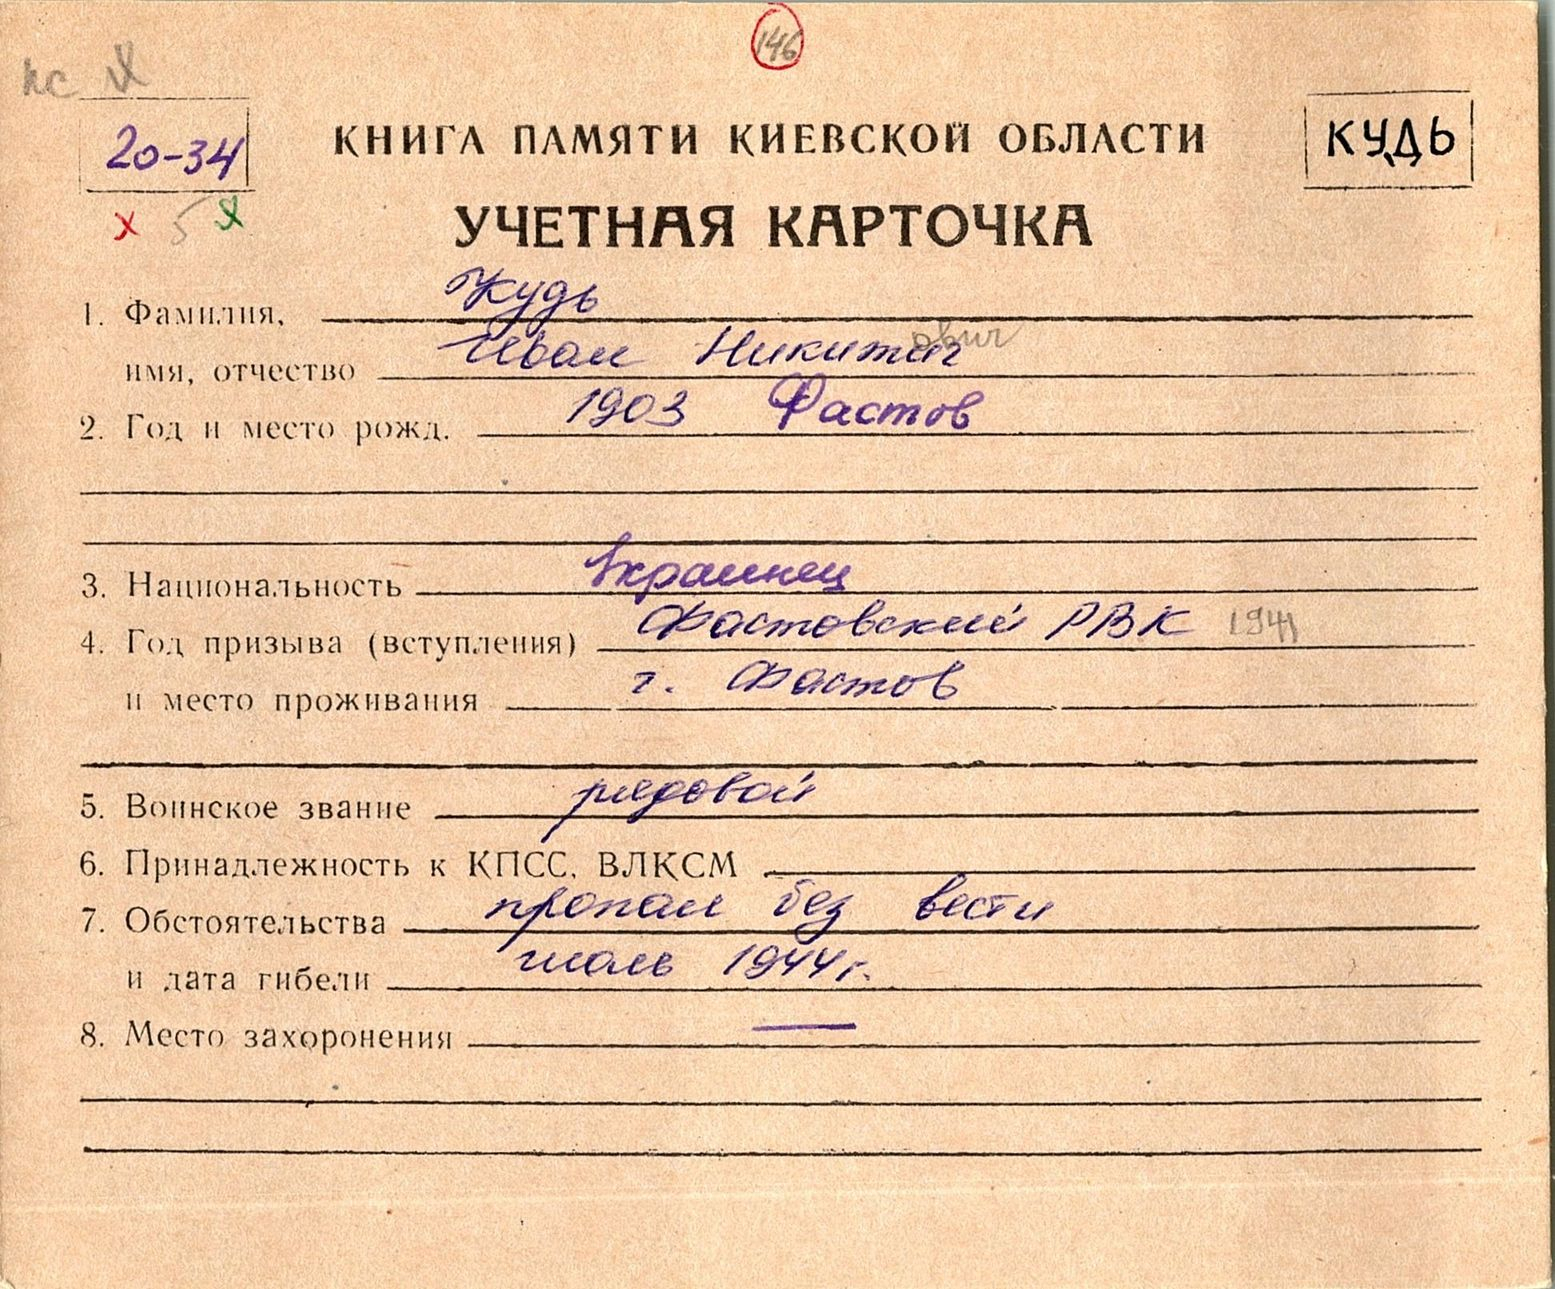 146
пс
20-34
КНИГА ПАМЯТИ КИЕВСКОЙ ОБЛАСТИ
КУДЬ
х 5 х
УЧЕТНАЯ КАРТОЧКА
1. Фамилия, Кудь
имя, отчество Иван Никитич ович
2. Год и место рожд. 1903 Фастов
3. Национальность Украинец
4. Год призыва (вступления) Фастовский РВК 1941
и место проживания г. Фастов
5. Воинское звание рядовой
6. Принадлежность к КПСС, ВЛКСМ
7. Обстоятельства пропал без вести
и дата гибели июль 1944 г.
8. Место захоронения —